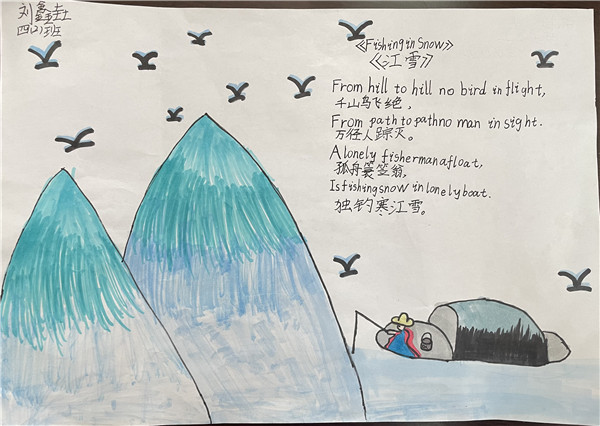 刘鑫垚
四(2)班
《Fishing in Snow》
《江雪》
From hill to hill no bird in flight,
千山鸟飞绝，
From path to path no man in sight.
万径人踪灭。
A lonely fisherman afloat,
孤舟蓑笠翁，
Is fishing snow in lonely boat.
独钓寒江雪。